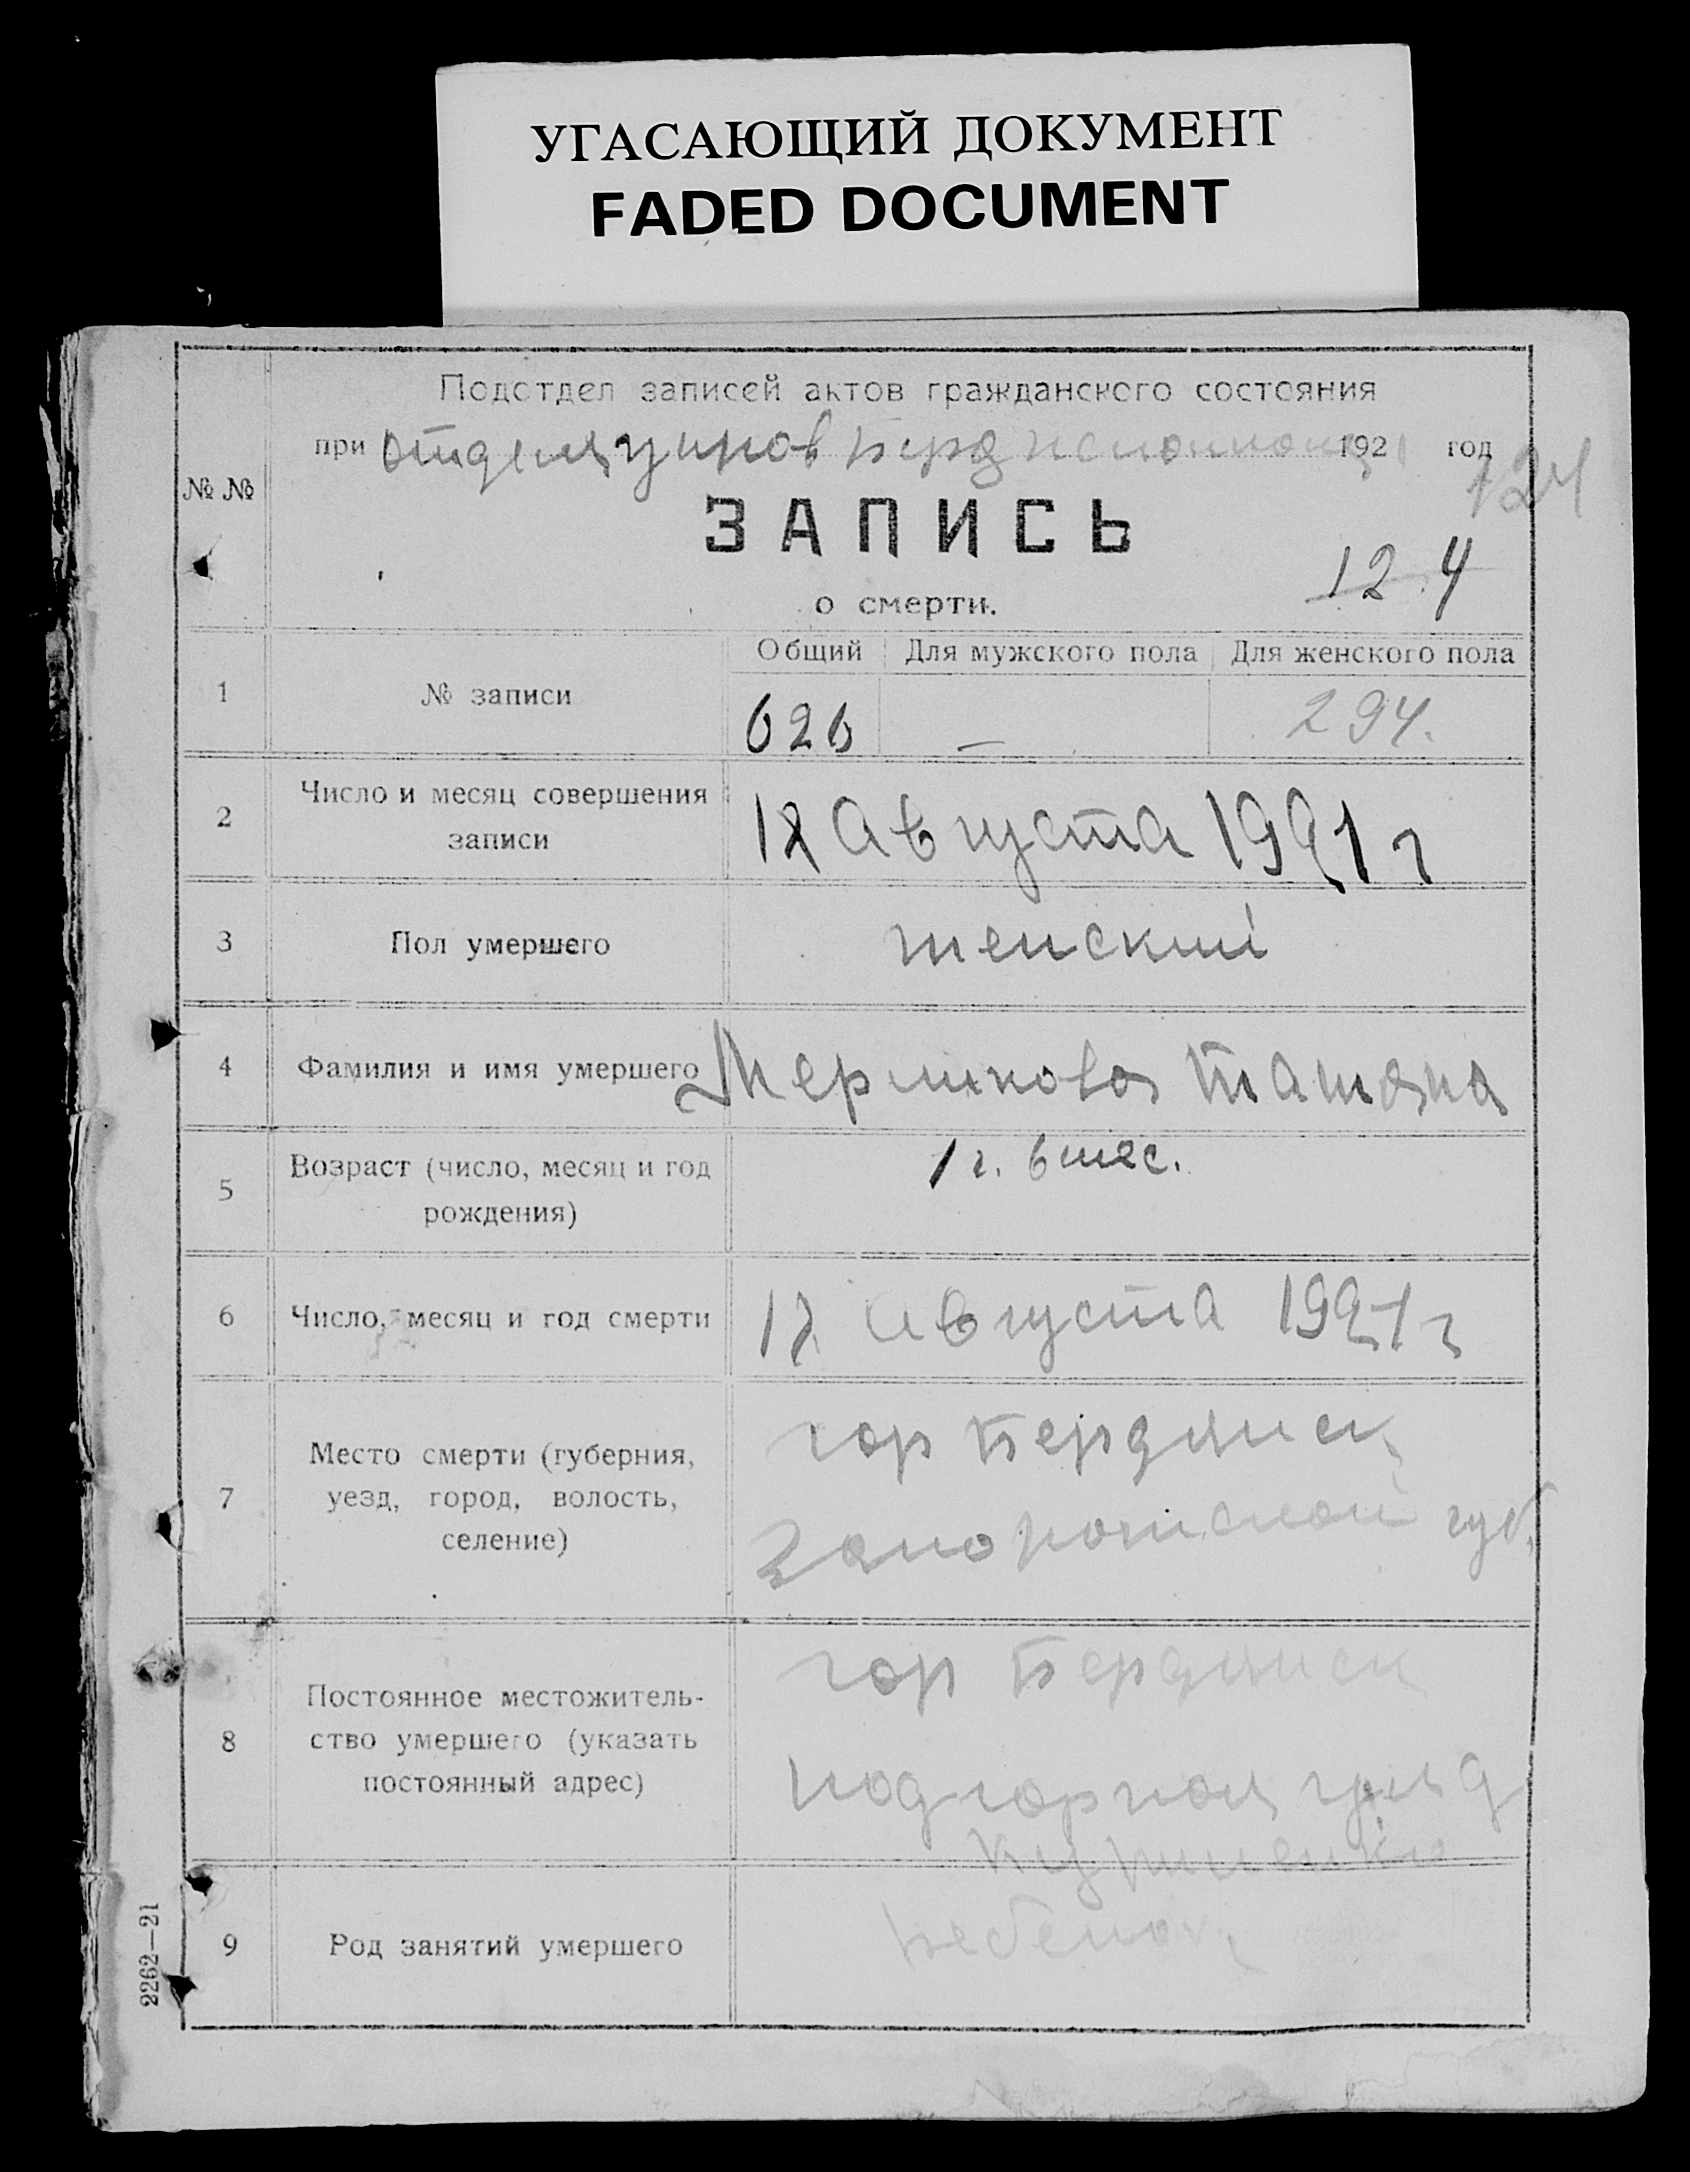 УГАСАЮЩИЙ ДОКУМЕНТ
FADED DOCUMENT
Подотдел записей актов гражданского состояния
при 192 год
124
№ №
ЗАПИСЬ
124
о смерти.
Общий Для мужского пола Для женского пола
1 № записи 626 — 294.
2 Число и месяц совершения
записи
Августа 1921 г
3 Пол умершего женский
4 Фамилия и имя умершего Татяна
5 Возраст (число, месяц и год
рождения)
1 г. 6 мес.
6 Число, месяц и год смерти августа 1921 г
7 Место смерти (губерния,
уезд, город, волость,
селение)
гор Бердянск
Запорожской губ.
8 Постоянное местожитель-
ство умершего (указать
постоянный адрес)
гор Бердянск
9 Род занятий умершего
2262—21